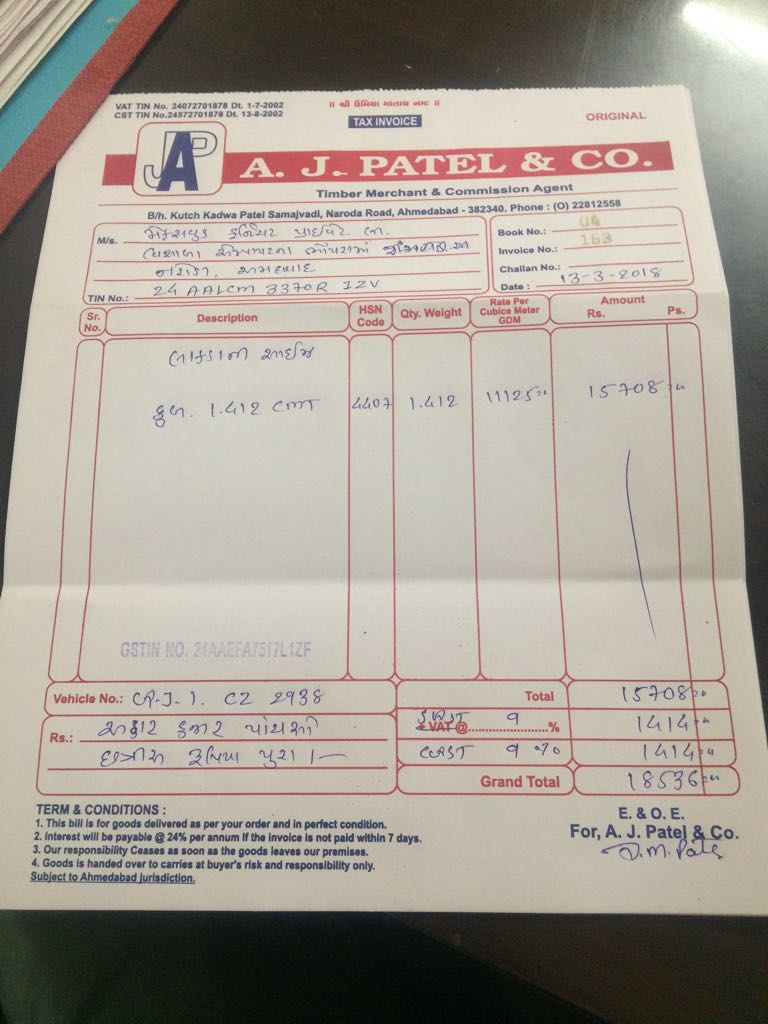 VAT TIN No. 24072701878 Dt. 1-7-2002
CST TIN No.24572701878 Dt. 13-8-2002
॥ શ્રી ઉમિયા માતાય નમઃ ॥
TAX INVOICE
ORIGINAL
JAP
A. J. PATEL & CO.
Timber Merchant & Commission Agent
B/h. Kutch Kadwa Patel Samajvadi, Naroda Road, Ahmedabad - 382340. Phone : (O) 22812558
M/s. મેક્સવુડ ફર્નિચર પ્રાઇવેટ લી.
નરોડા, અમદાવાદ
TIN No.: 24 AALCM 3370R 1ZV
Book No.: 04
Invoice No.: 163
Challan No.:
Date : 13-3-2018
Sr. No. Description HSN Code Qty. Weight Rate Per Cubice Meter GDM Amount Rs. Ps.
લાકડાની સાઈઝ
કુલ. 1.412 CMT 4407 1.412 11125 15708
GSTIN NO. 24AAEFA7517L1ZF
Vehicle No.: G.J. 1. CZ 2938
Total 15708
Rs.: અઢાર હજાર પાંચસો
છત્રીસ રૂપિયા પુરા ।—
VAT @ 9 % 1414
CGST 9 % 1414
Grand Total 18536
TERM & CONDITIONS :
1. This bill is for goods delivered as per your order and in perfect condition.
2. Interest will be payable @ 24% per annum if the invoice is not paid within 7 days.
3. Our responsibility Ceases as soon as the goods leaves our premises.
4. Goods is handed over to carries at buyer's risk and responsibility only.
Subject to Ahmedabad jurisdiction.
E. & O. E.
For, A. J. Patel & Co.